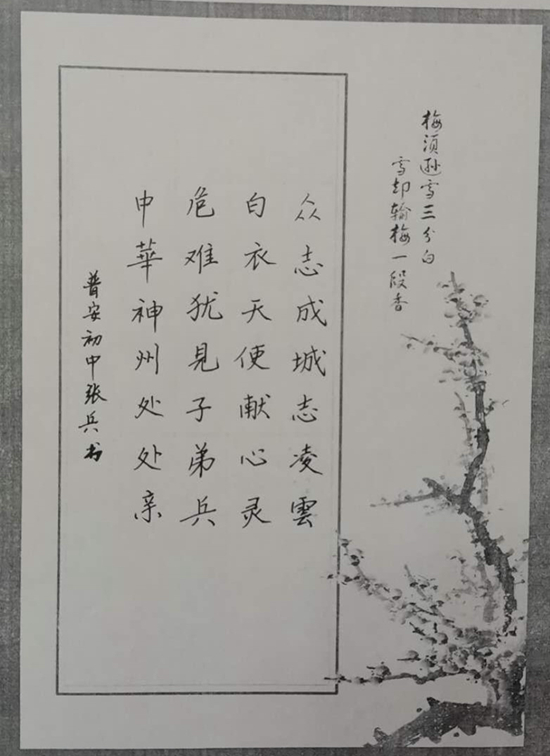 梅须逊雪三分白
雪却输梅一段香
众志成城志凌雲
白衣天使献心灵
危难犹見子弟兵
中華神州处处亲
普安初中张兵书